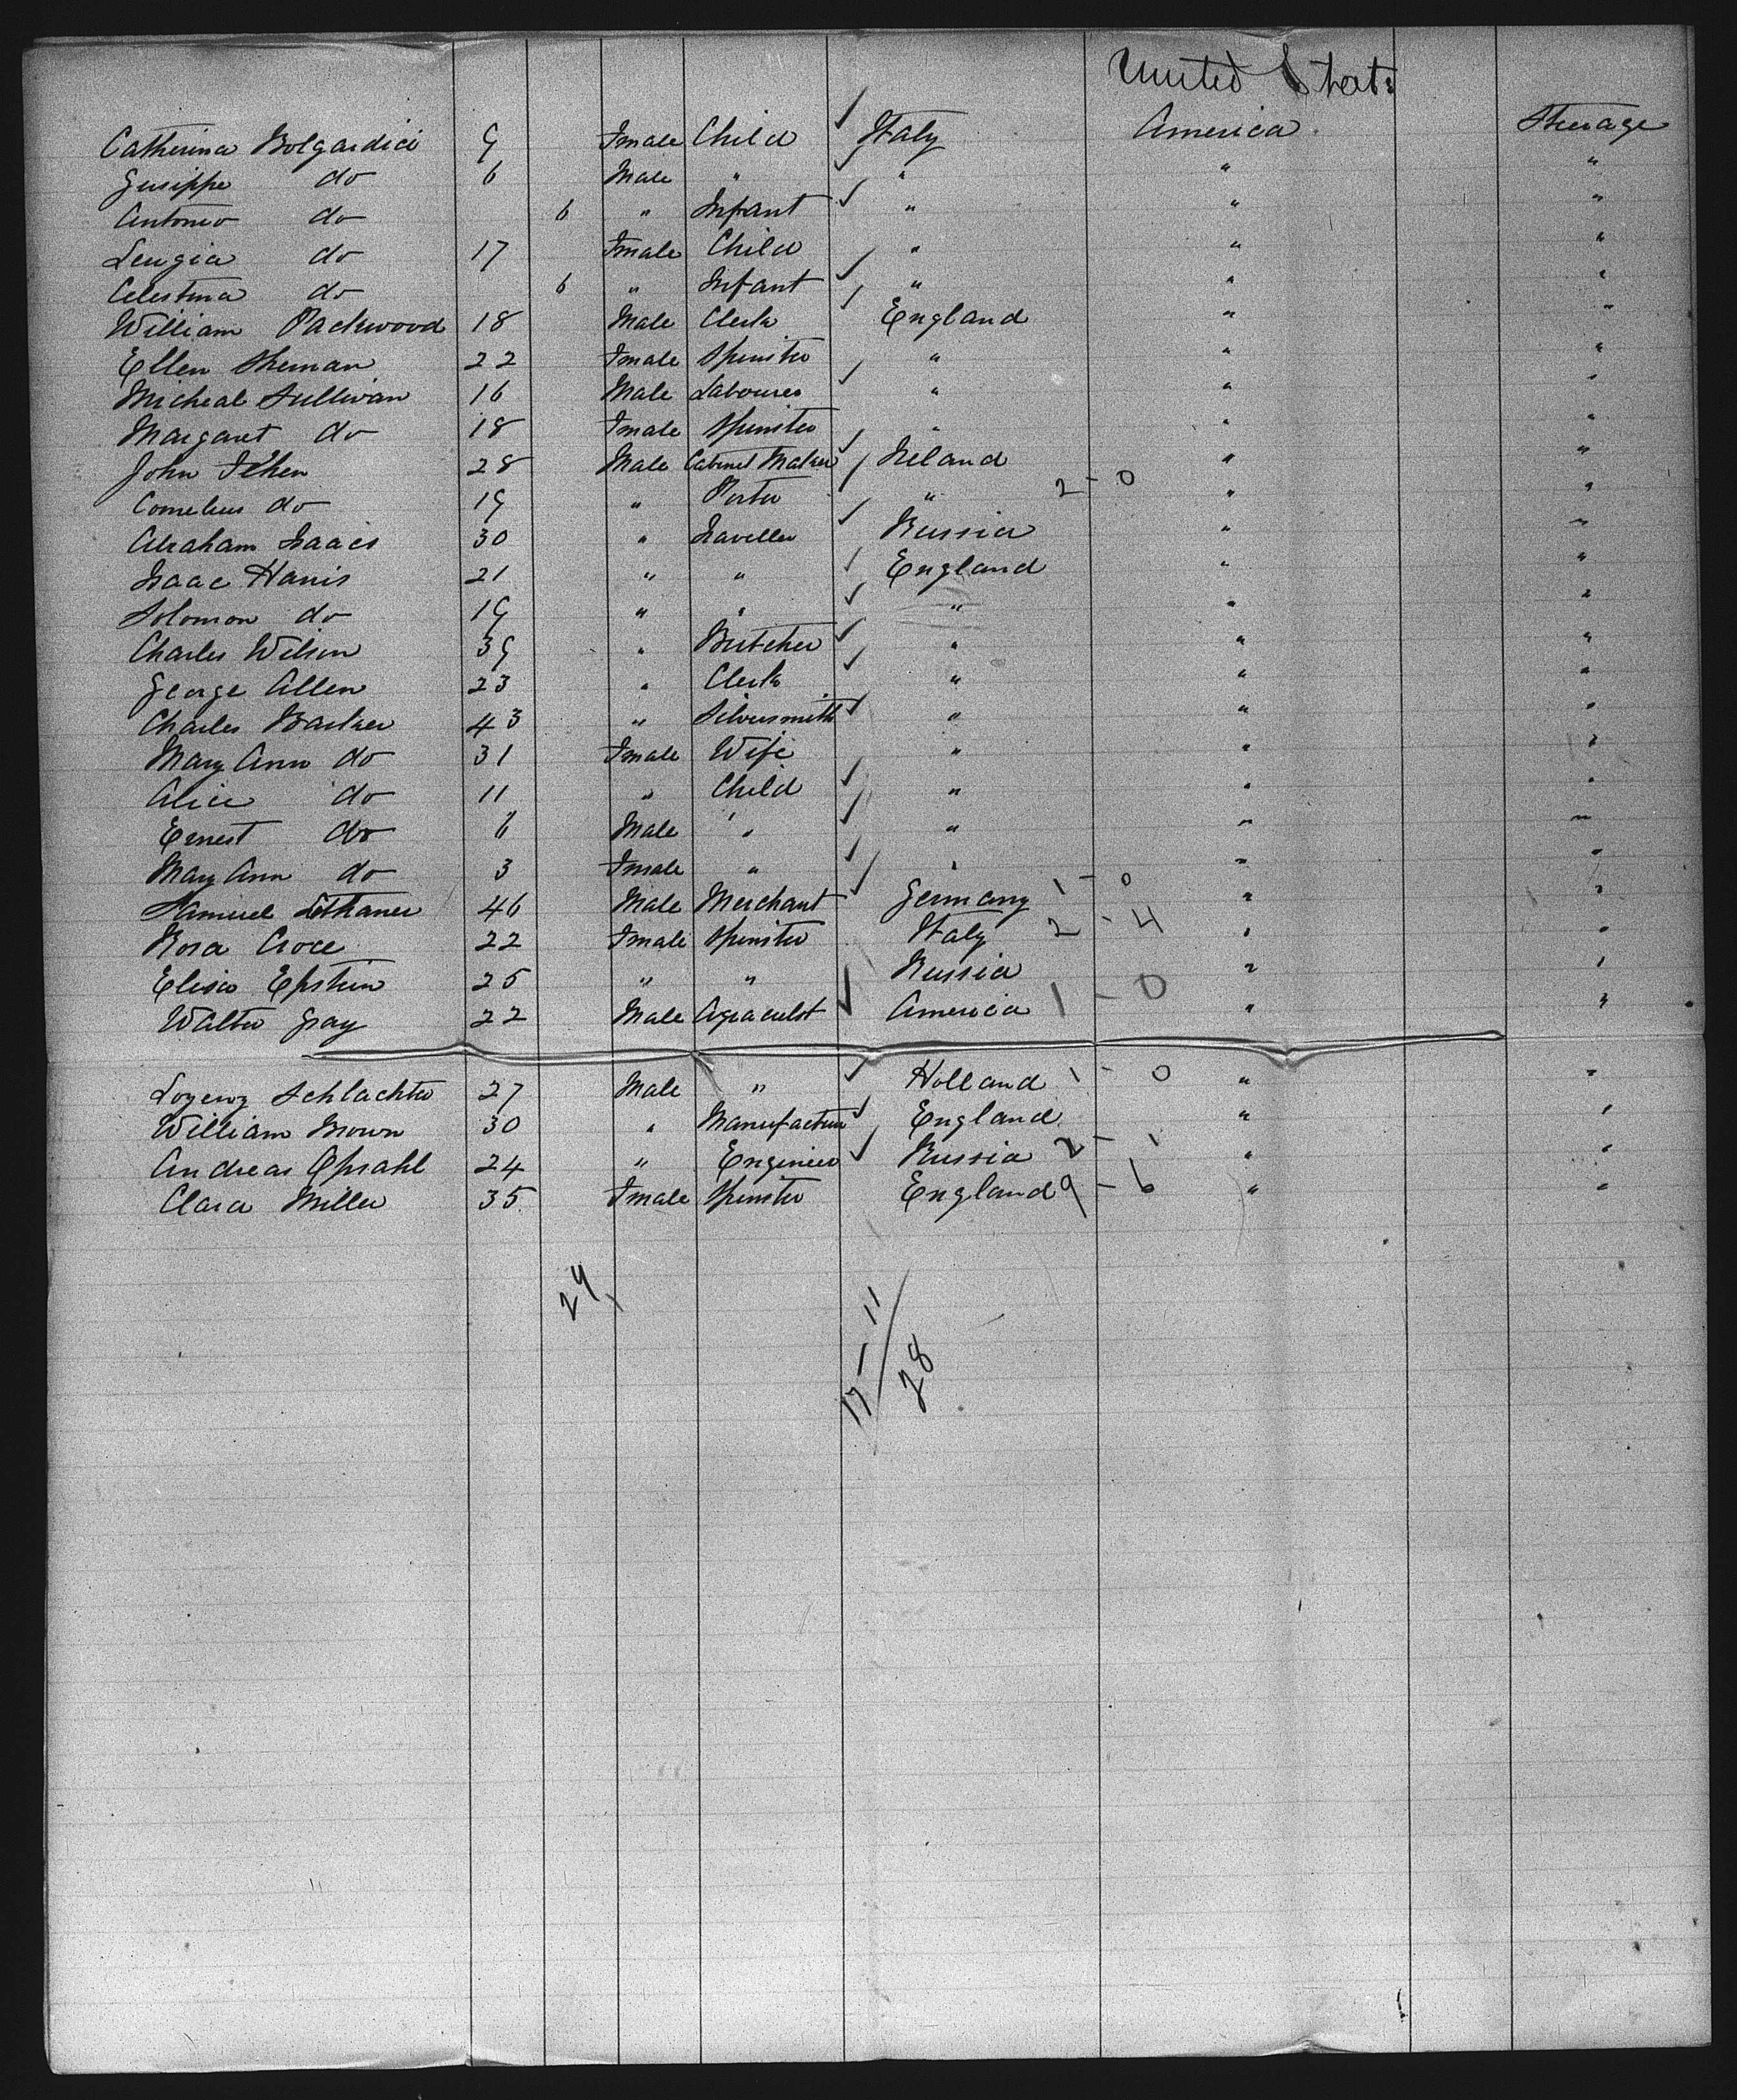 United States
Catherina Bolgardici 9 Female Child ✓ Italy America Steerage
Guseppe do 6 Male " ✓ " " "
Antonio do 6 " Infant ✓ " " "
Leugia do 17 Female Child ✓ " " "
Celestina do 6 " Infant ✓ " " "
William Packwood 18 Male Clerk ✓ England " "
Ellen Sheman 22 Female Spinster " " "
Micheal Sullivan 16 Male Labourer ✓ " " "
Margaret do 18 Female Spinster " " "
John 28 Male Cabinet Maker ✓ Ireland " "
Cornelius do 19 " Porter ✓ " 2 - 0 " "
Abraham Isaacs 30 " Traveller ✓ Russia " "
Isaac Harris 21 " " ✓ England " "
Solomon do 19 " " ✓ " " "
Charles Wilson 39 " Butcher ✓ " " "
George Allen 23 " Clerk ✓ " " "
Charles Barker 43 " Silversmith ✓ " " "
Mary Ann do 31 Female Wife " " "
Alice do 11 " Child ✓ " " "
Ernest do 6 Male " ✓ " " "
Mary Ann do 3 Female " ✓ " " "
Samuel 46 Male Merchant ✓ Germany 1 - 0 " "
Rosa Croce 22 Female Spinster Italy 2 - 4 " "
Elisa Epstein 25 " " Russia " "
Walter Gray 22 Male Agracult ✓ America 1 - 0 " "
Schlachter 27 Male " ✓ Holland 1 - 0 " "
William Brown 30 " Manufacturer ✓ England " "
Andreas Opsahl 24 " Engineer ✓ Russia 2 - 1 " "
Clara Miller 35 Female Spinster England 9 - 6 " "
29
17 - 11
28